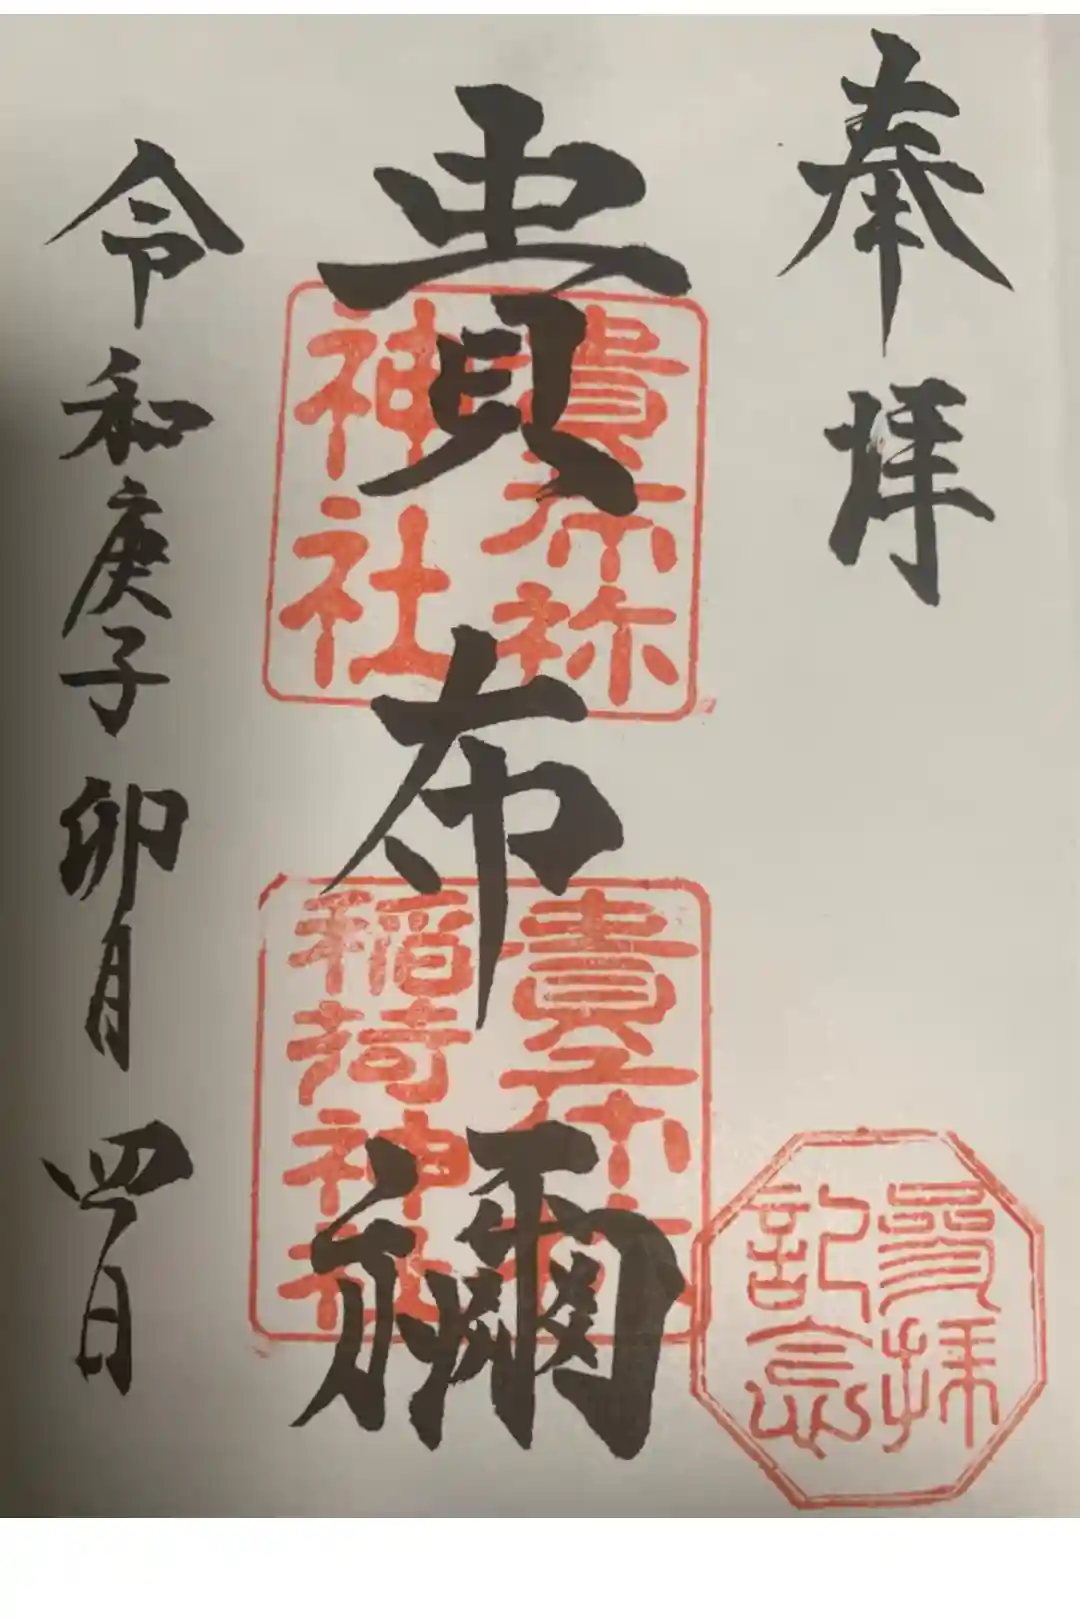 奉拝
貴布禰
令和庚子 卯月 四日
貴布祢
神社
稲荷神社
参拝
記念